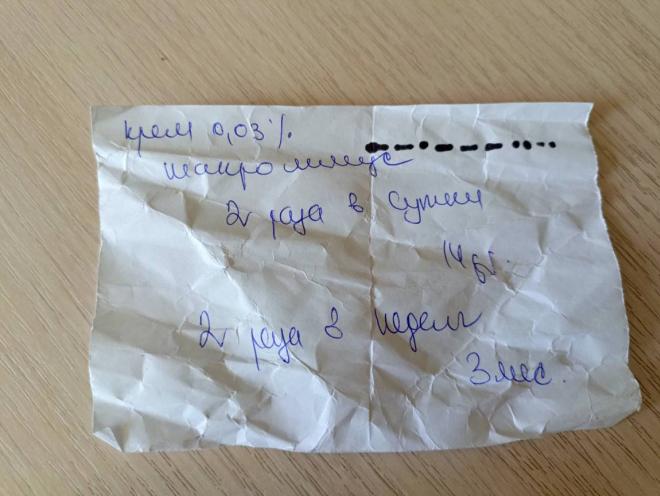 крем 0,03%
такролимус
2 раза в сутки
14 дн.
2 раза в неделю
3 мес.